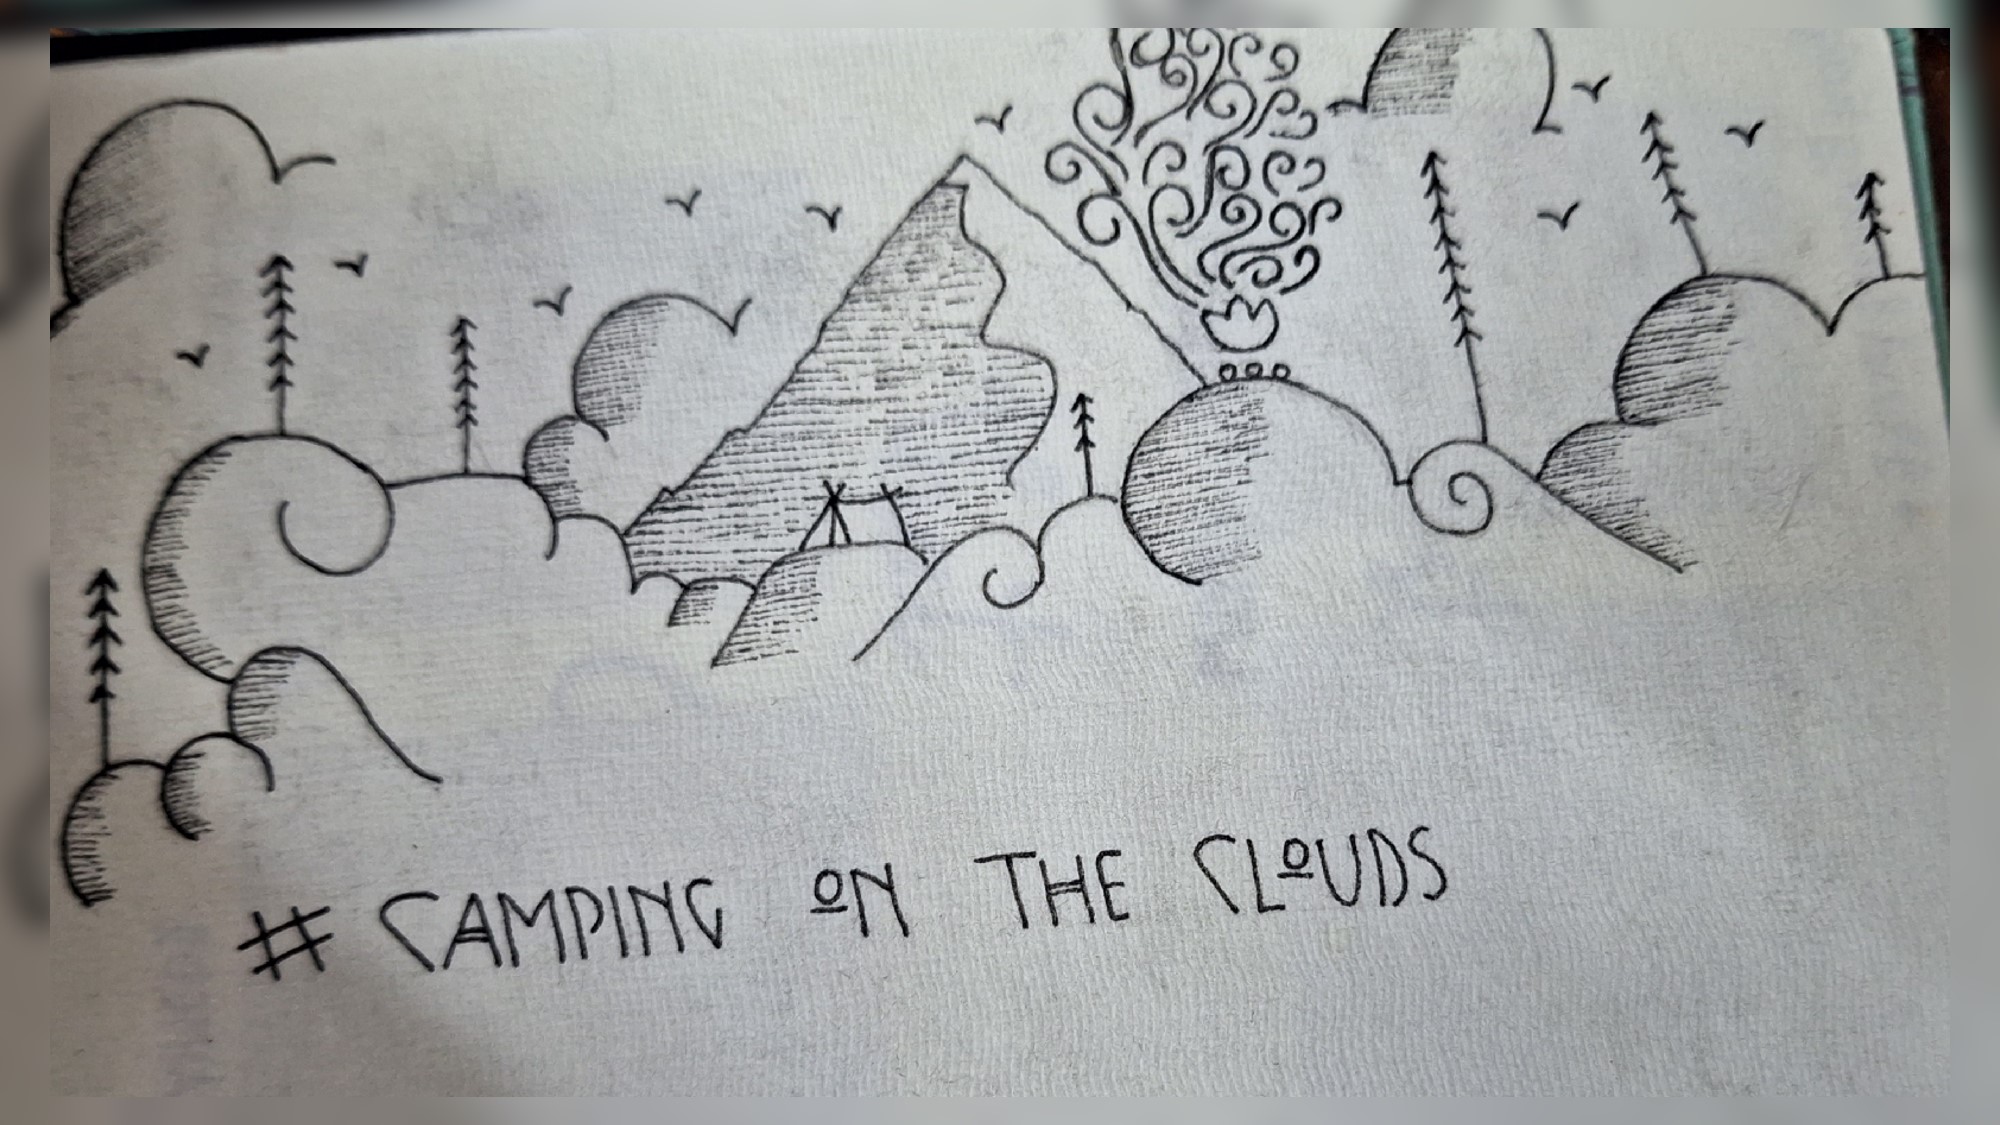 # CAMPING ON THE CLOUDS